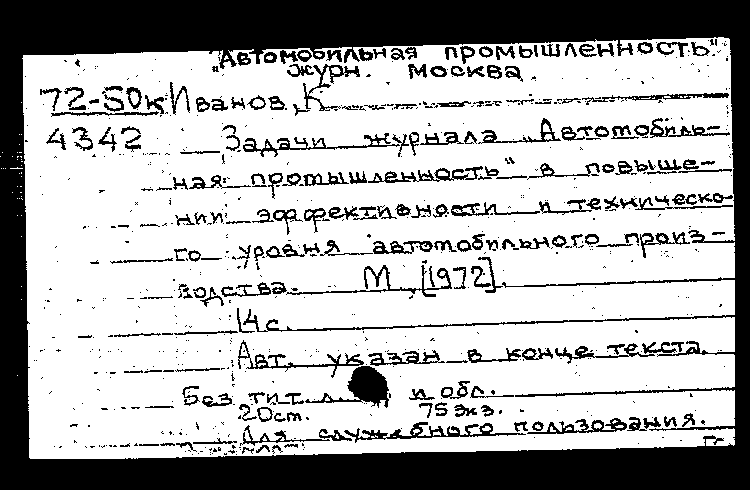 "Автомобильная промышленность"
журн. Москва.
72-50к Иванов, К
4342 Задачи журнала "Автомобиль-
ная промышленность" в повыше-
нии эффективности и техническо-
го уровня автомобильного произ-
водства. М, [1972].
14с.
Авт. указан в конце текста.
Без тит. л. и обл.
20ст. 75 экз.
Для служебного пользования.